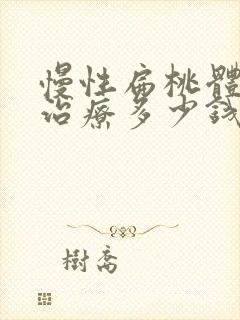 慢性扁桃體
治療多少錢
樹喬